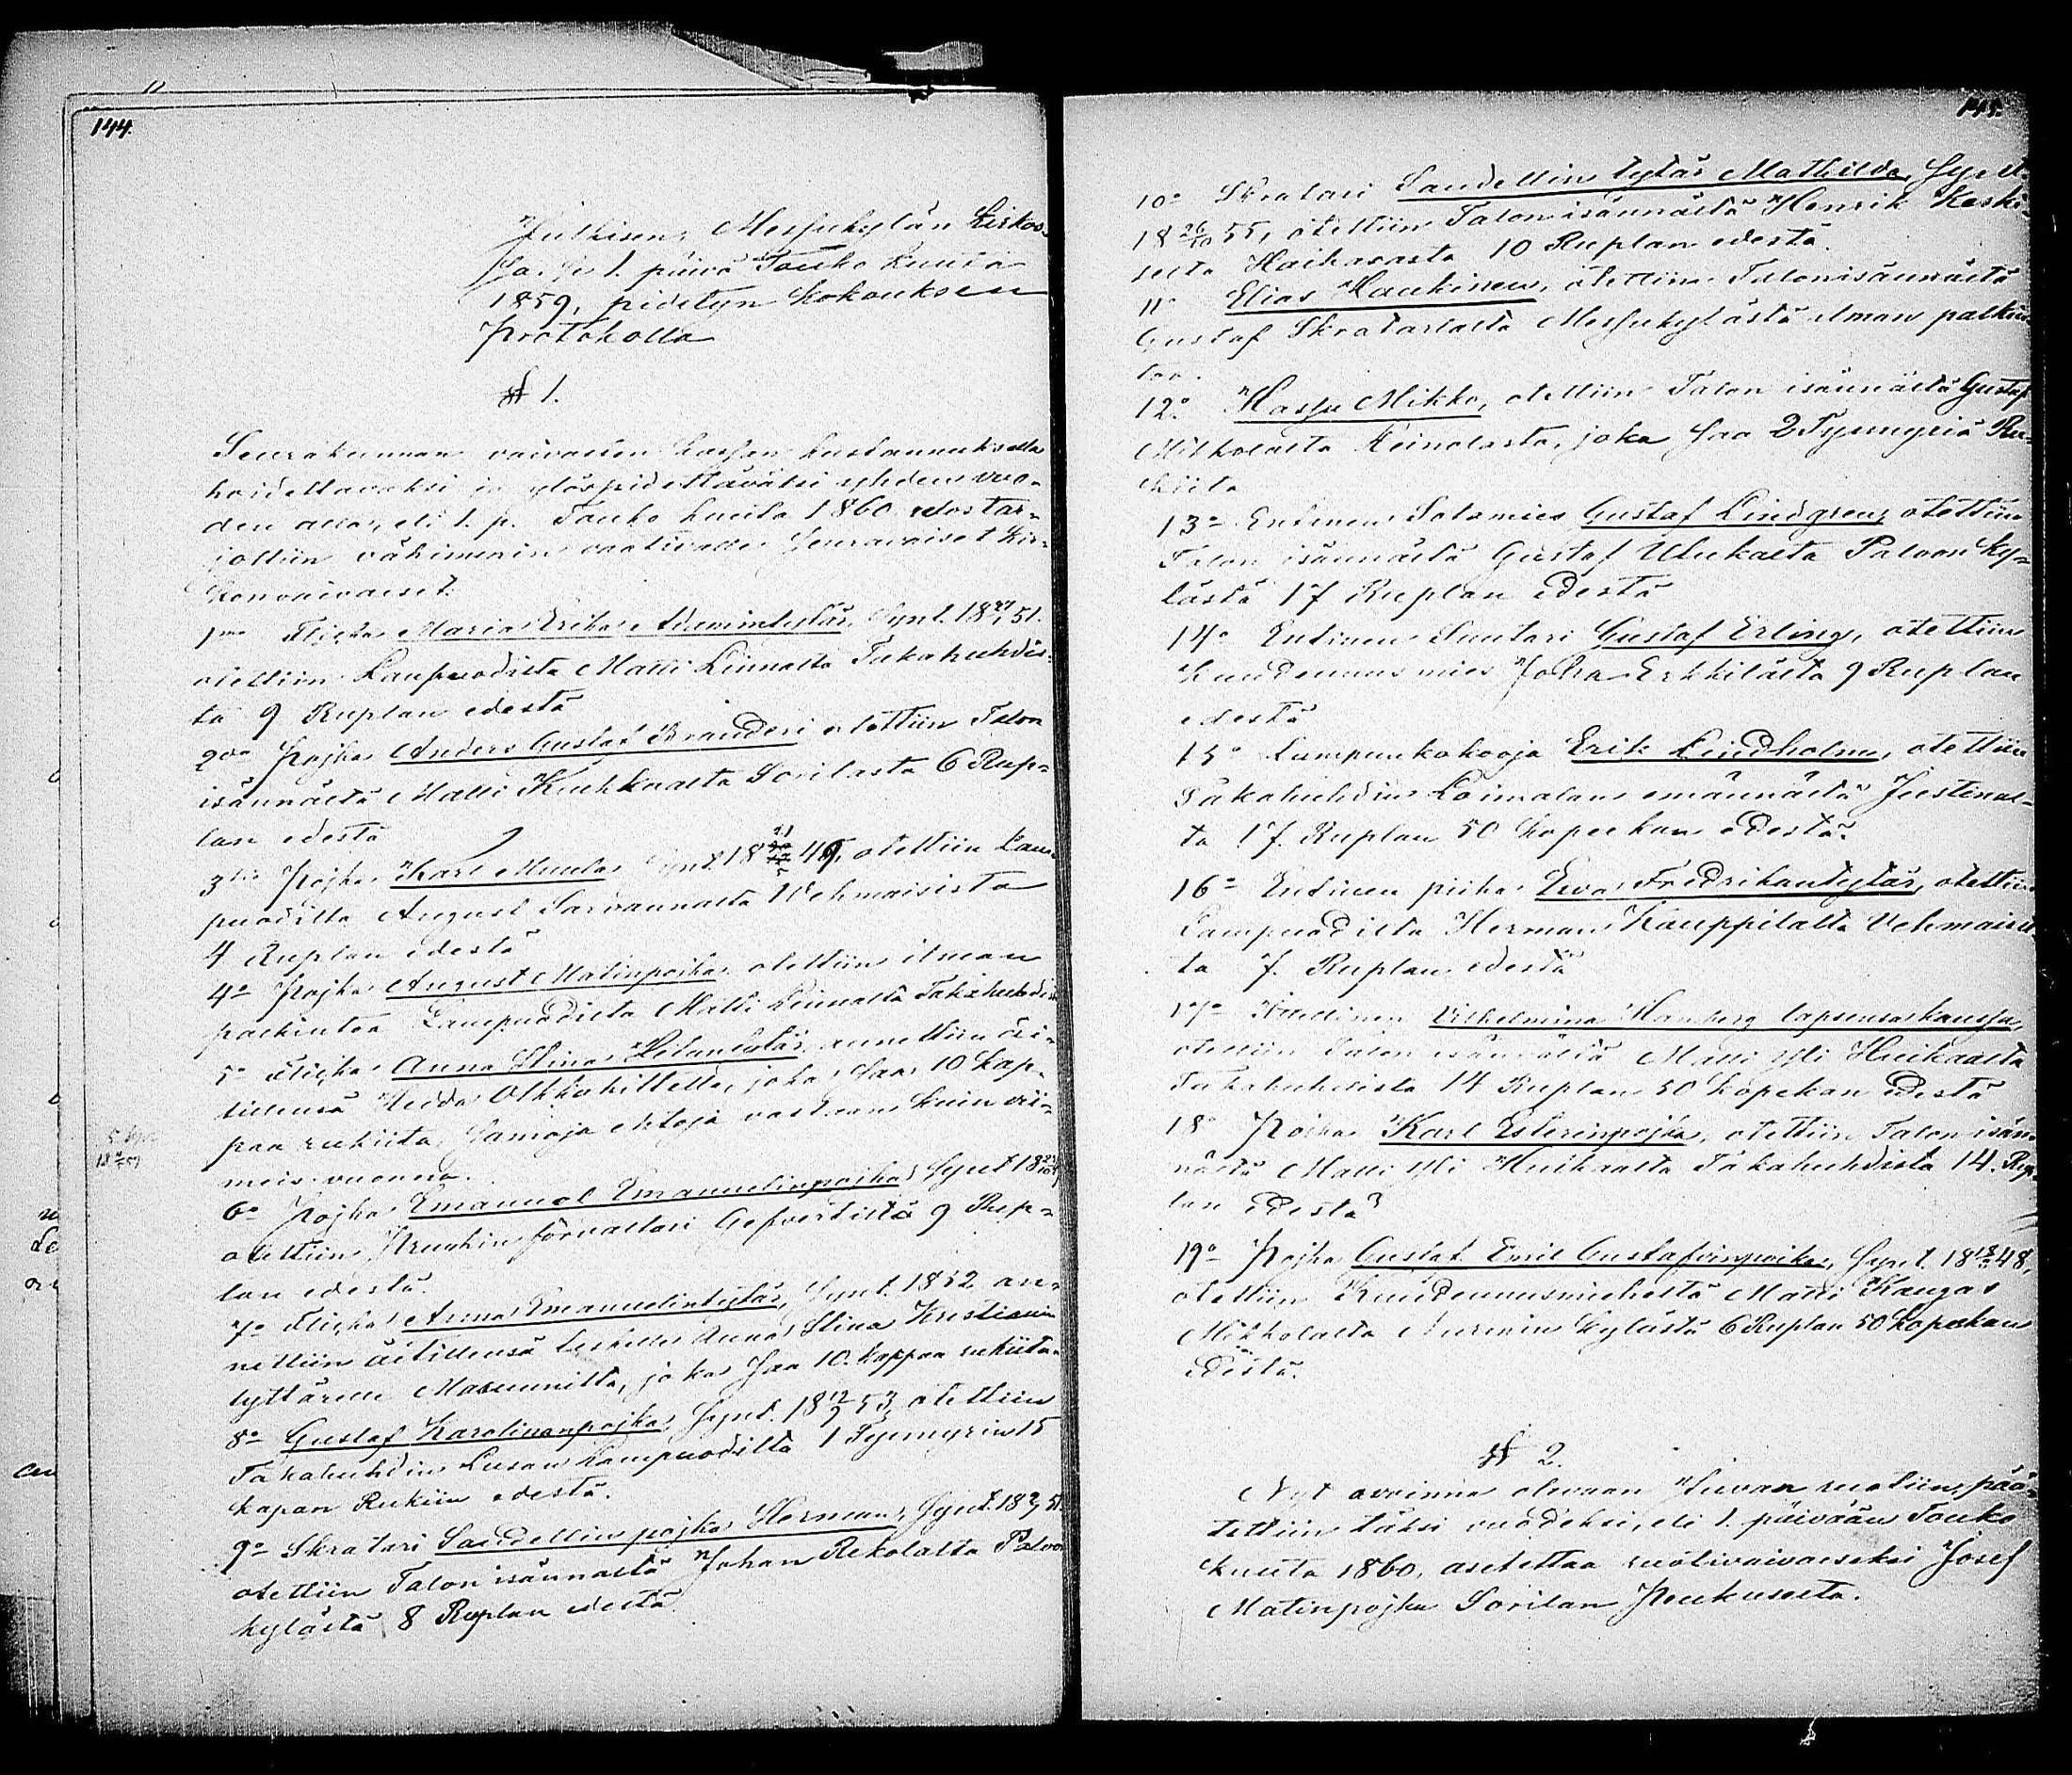 144.
Julkisen, Messukylän Kirkos-
sa, se 1. päivä Touko kuuta
1859, pidetyn Kokouksen
Protokolla
§ 1.
Seurakunnan vaivasten kassan kustannuksella
hoidettavaksi ja ylöspidettäväksi yhden vuo-
den ala, eli 1. p. Touko kuuta 1860 ulostar-
jottiin vähimmin vaativalle seuravaiset Kir-
konvaivaiset.
1mo Flicka Maria Erika Adamintytär, Synt. 18 27/ 51.
otettiin Lampuodilta Matti Linnalta Takahuhdis-
ta 9 Ruplan edestä
2do Pojka Anders Gustaf Branderi otettiin Talon
isännältä Matti Kuhkoalta Sorilasta 6 Rup-
lan edestä
3tio Pojka Karl Munta Synt 18 21/5 49, otettiin Lam-
puodilta August Sarvannalta Vehmaisista
4 Ruplan edestä
4o Pojka August Matinpoika otettiin ilman
palkintoa Lampuodilta Matti Linnalta Takahuhdis
5o Flicka Anna Stina Heluntytär annettiin äi-
tillensä Heida Olkkakittelle, joka saa 10 kap-
paa rukiita, samoja ehtoja vastaan kuin vii-
meis vuonna.
6o Pojka Emanuel Emanuelinpoika Synt 18
otettiin Pruukin förvaltari Gefvertiltä 9 Rup-
lan edestä.
7o Flicka Anna Emanuelintytär, Synt. 1852 an-
nettiin äitillensä leskelle Anna Stina Kristianin
tyttärelle Masunnilta, joka saa 10. kappaa rukiita.
8o Gustaf Karolinanpojka, Synt. 18 12/9 53, otettiin
Takahuhdin Lusan Lampuodilta 1 Tynnyrin 15
kapan Rukiin edestä.
9o Skratari Sandellin pojka Herman, Synt. 18 51.
otettiin Talon isännältä Johan Rekolalta Palvon
kylästä 8 Ruplan edestä
145.
10o Skratari Sandellin tytär Mathilda, Synt.
18 26/10 55, otettiin Talon isännältä Henrik Keski-
selta Haiharasta 10 Ruplan edestä.
11o Elias Haukinen, otettiin Talonisännältä
Gustaf Skratarlalta Messukylästä ilman palkin-
too.
12o Hassu Mikko, otettiin Talon isännältä Gustaf
Mikkolalta Leinolasta, joka saa 2 Tynnyriä Ru-
kiita
13o Entinen Solamies Gustaf Lindgren, otettiin
Talon isännältä Gustaf Ulukalta Palvon ky-
lästä 17 Ruplan edestä
14o Entinen Suutari Gustaf Erling, otettiin
Kuudennusmies Joha Erkkilältä 9 Ruplan
edestä
15o Lumpunkokooja Erik Lindholm, otettiin
Takahuhdin Loimalan emännältä Justinal-
ta 17. Ruplan 50 Kopeekan edestä.
16o Entinen piika Eva Fredrikantytär, otettiin
Lampuodilta Herman Kauppilalta Vehmaisis
ta 7. Ruplan edestä
17o Itsellinen Vilhelmina Hamberg lapsensa kanssa,
otettiin Talon isännältä Matti Yli Huikaalta
Takahuhdista 14 Ruplan 50 Kopekan edestä
18o Pojka Karl Esterinpojka, otettiin Talon isän-
nältä Matti Yli Huikaalta Takahuhdista 14. Rup-
lan edestä
19o Pojka Gustaf Emil Gustafvinpoika, Synt. 18 48,
otettiin Kuudennusmieheltä Matti Kangas
Mikkolalta Nurmin kylästä 6 Ruplan 50 Kopekan
edestä.
§ 2.
Nyt avoinna olevaan Juvan ruotiin, pää-
tettiin täksi vuodeksi, eli 1. päivään Touko
kuuta 1860, asetettaa ruotivaivaseksi Josef
Matinpojka Sorilan Penkuselta.